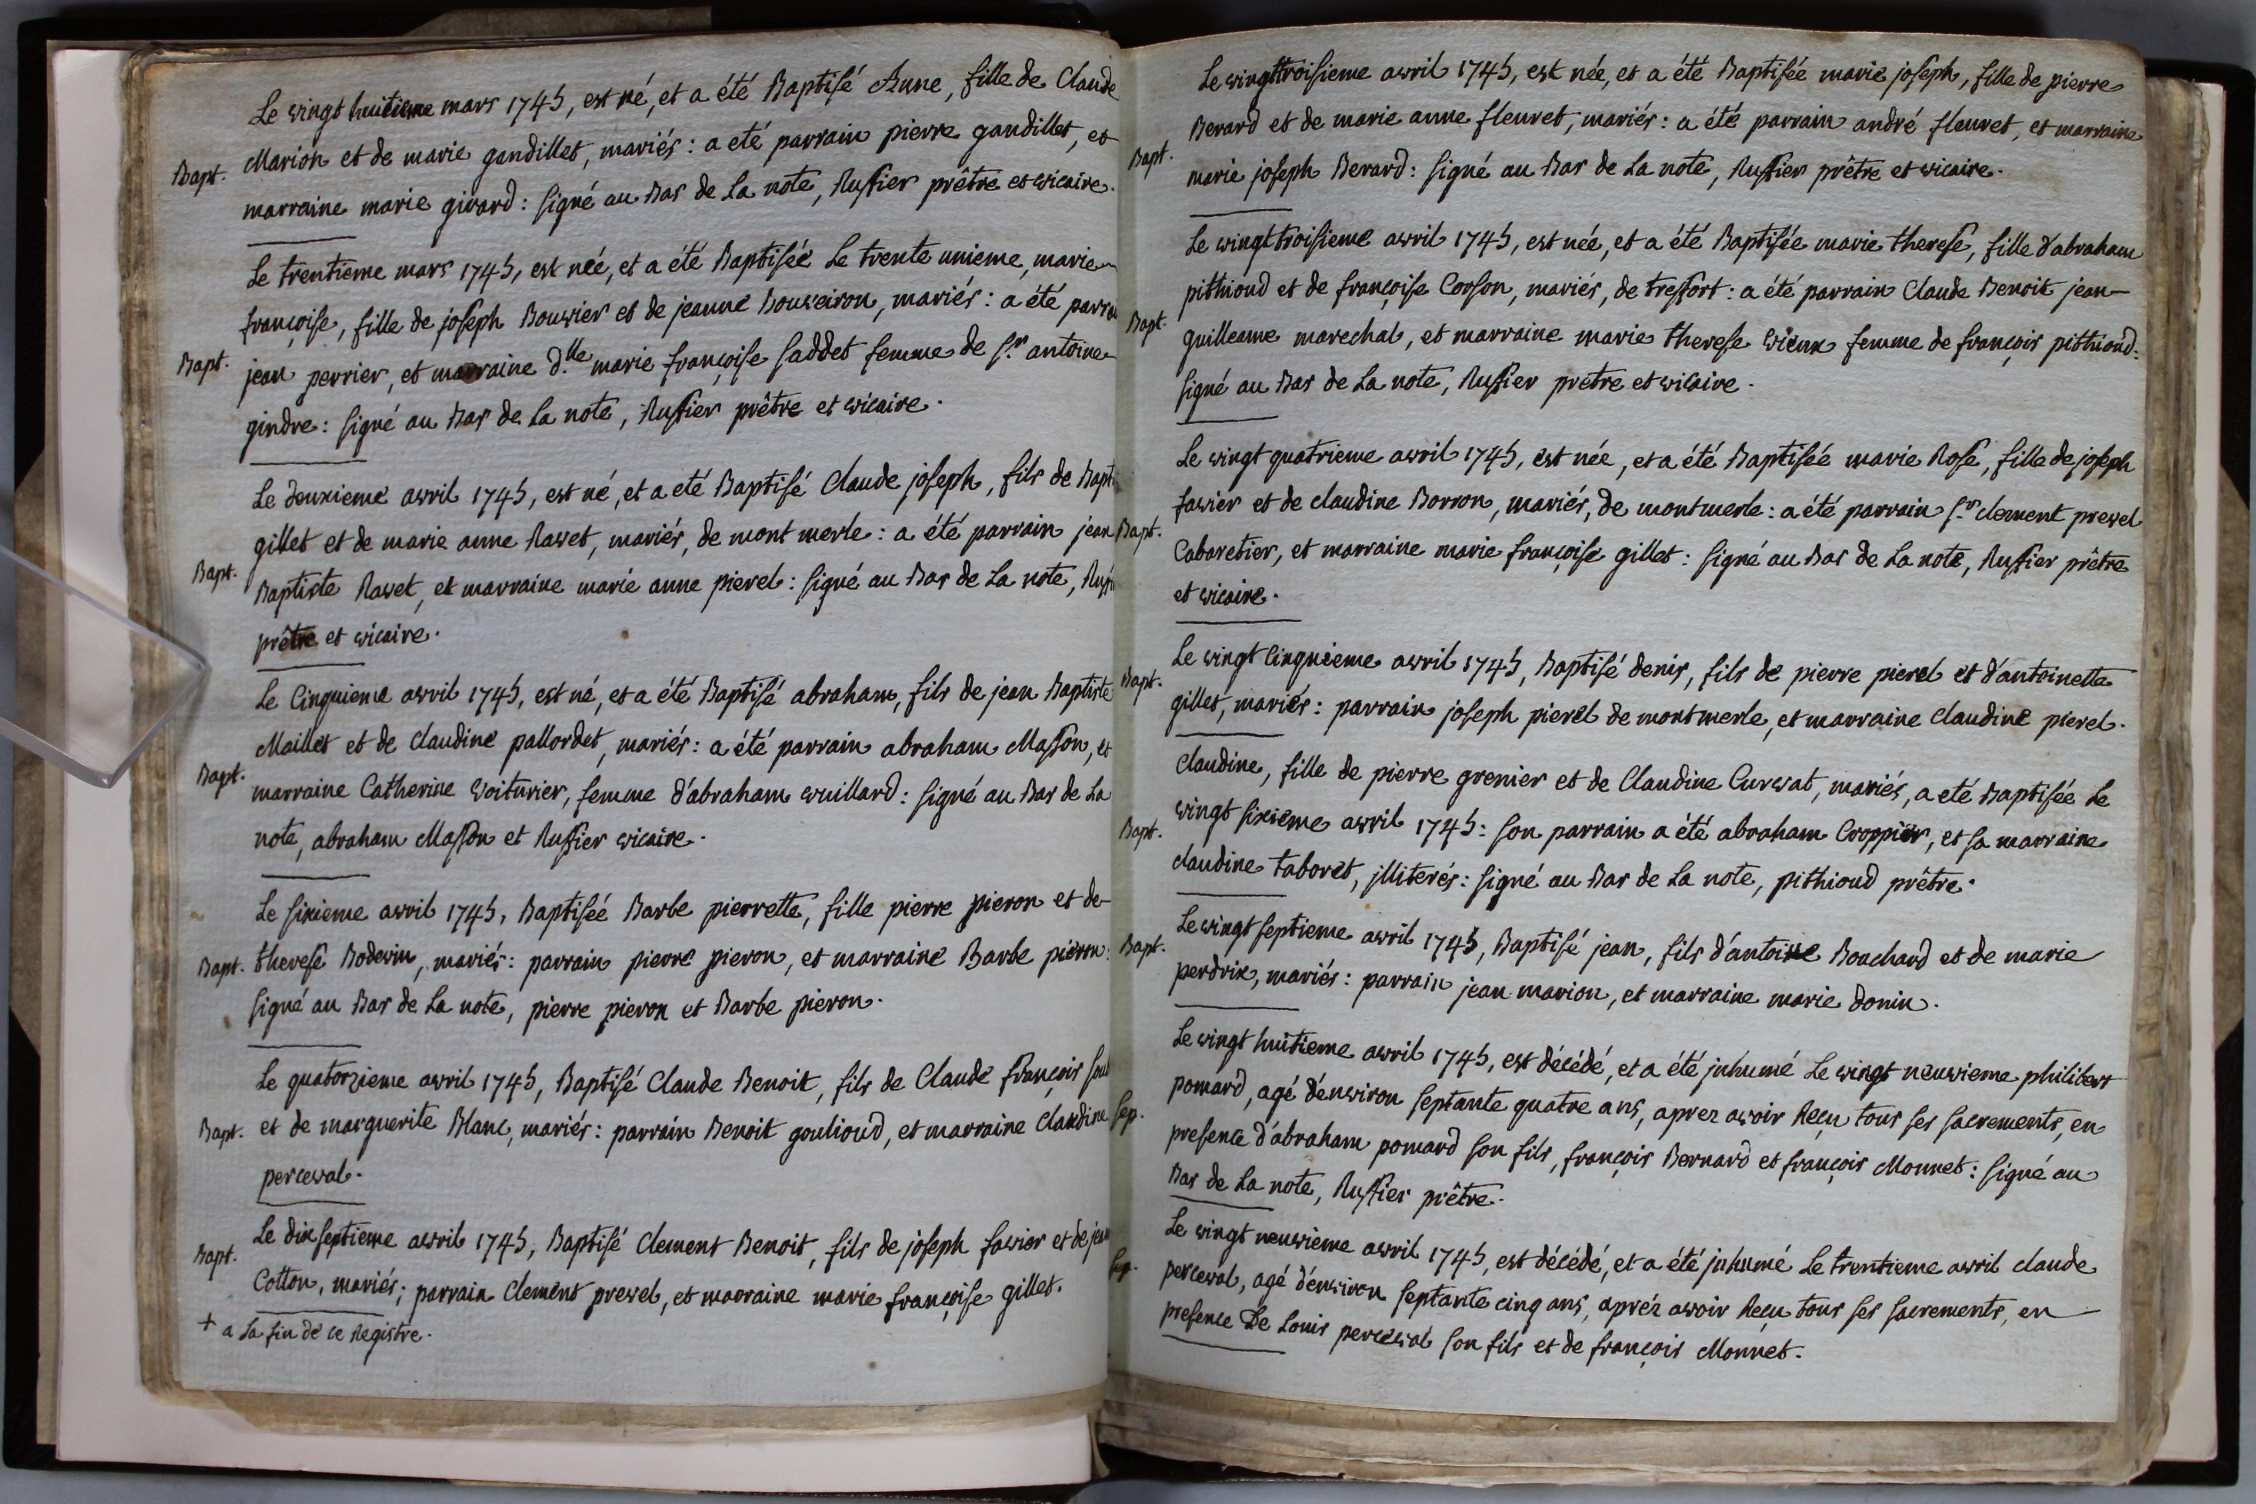 Le vingt huitieme mars 1745, est né, et a été Baptisé Anne, fille de Claude
Bapt. Marion et de marie gandillet, mariés: a eté parrain pierre gandillet, et
marraine marie girard: signé au Bas de La note, Ruffier prêtre et vicaire.
Le trentieme mars 1745, est née, et a été Baptisée Le trente unieme, marie
françoise, fille de joseph Bouvier et de jeanne Bouveiron, mariés: a été
Bapt. jean perrier, et marraine d.lle marie françoise saddet femme de s.r antoine
gindre: signé au Bas de La note, Ruffier prêtre et vicaire.
Le deuxieme avril 1745, est né, et a eté Baptisé Claude joseph, fils de
gillet et de marie anne Ravet, mariés, de mont merle: a été parrain jean
Bapt. Baptiste Ravet, et marraine marie anne pierel: signé au Bas de La note,
prêtre et vicaire.
Le Cinquieme avril 1745, est né, et a été Baptisé abraham, fils de jean Baptiste
Maillet et de Claudine pallordet, mariés: a été parrain abraham Masson, et
Bapt. marraine Catherine Voiturier, femme d'abraham vuillard: signé au Bas de La
note, abraham Masson et Ruffier vicaire.
Le sixieme avril 1745, Baptisée Barbe pierrette, fille pierre pieron et de
Bapt. therese Bodevin, mariés: parrain pierre pieron, et marraine Barbe pieron:
signé au Bas de La note, pierre pieron et Barbe pieron.
Le quatorzieme avril 1745, Baptisé Claude Benoit, fils de Claude françois
Bapt. et de marguerite Blanc, mariés: parrain Benoit goulioud, et marraine Claudine
perceval.
Le dix septieme avril 1745, Baptisé Clement Benoit, fils de joseph favier et de
Bapt. Cotton, mariés; parrain Clement prevel, et marraine marie françoise gillet.
+ a La fin de ce Registre.
Le vingt troisieme avril 1745, est née, et a été Baptisée marie joseph, fille de pierre
Berard et de marie anne fleuret, mariés: a été parrain andré fleuret, et marraine
Bapt. marie joseph Berard: signé au Bas de La note, Ruffier prêtre et vicaire.
Le vingt troisieme avril 1745, est née, et a été Baptisée marie therese, fille d'abraham
pithioud et de françoise Corson, mariés, de tressort: a été parrain Claude Benoit jean
Bapt. guilleaume marechal, et marraine marie therese Vieux femme de françois pithioud:
signé au Bas de La note, Ruffier pretre et vicaire.
Le vingt quatrieme avril 1745, est née, et a été Baptisée marie Rose, fille de joseph
favier et de claudine Borron, mariés, de montmerle: a été parrain s.r clement prevel
Bapt. Cabaretier, et marraine marie françoise gillet: signé au Bas de La note, Ruffier prêtre
et vicaire.
Le vingt Cinquieme avril 1745, Baptisé denis, fils de pierre pierel et d'antoinette
Bapt. gillet, mariés: parrain joseph pierel de montmerle, et marraine claudine pierel.
Claudine, fille de pierre grenier et de Claudine Curvat, mariés, a eté Baptisée Le
vingt sixieme avril 1745: son parrain a été abraham Croppier, et sa marraine
Bapt. claudine taboret, jlliterés: signé au Bas de La note, pithioud prêtre.
Le vingt septieme avril 1745, Baptisé jean, fils d'antoine Bouchard et de marie
Bapt. perdrix, mariés: parrain jean marion, et marraine marie donin.
Le vingt huitieme avril 1745, est décédé, et a été jnhumé Le vingt neuvieme philibert
Sep. pomard, agé d'environ septante quatre ans, aprez avoir Reçu tous ses sacrements, en
presence d'abraham pomard son fils, françois Bernard et françois Monnet: signé au
Bas de La note, Ruffier prêtre.
Le vingt neuvieme avril 1745, est décédé, et a été jnhumé Le trentieme avril claude
Sep. perceval, agé d'environ septante cinq ans, aprèz avoir Reçu tous ses sacrements, en
presence De Louis perceval son fils et de françois Monnet.